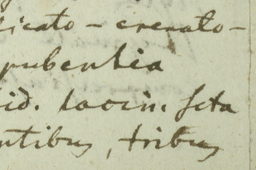 icato-crenato-
pubentia
id. lacin. seta
ntibus, tribus